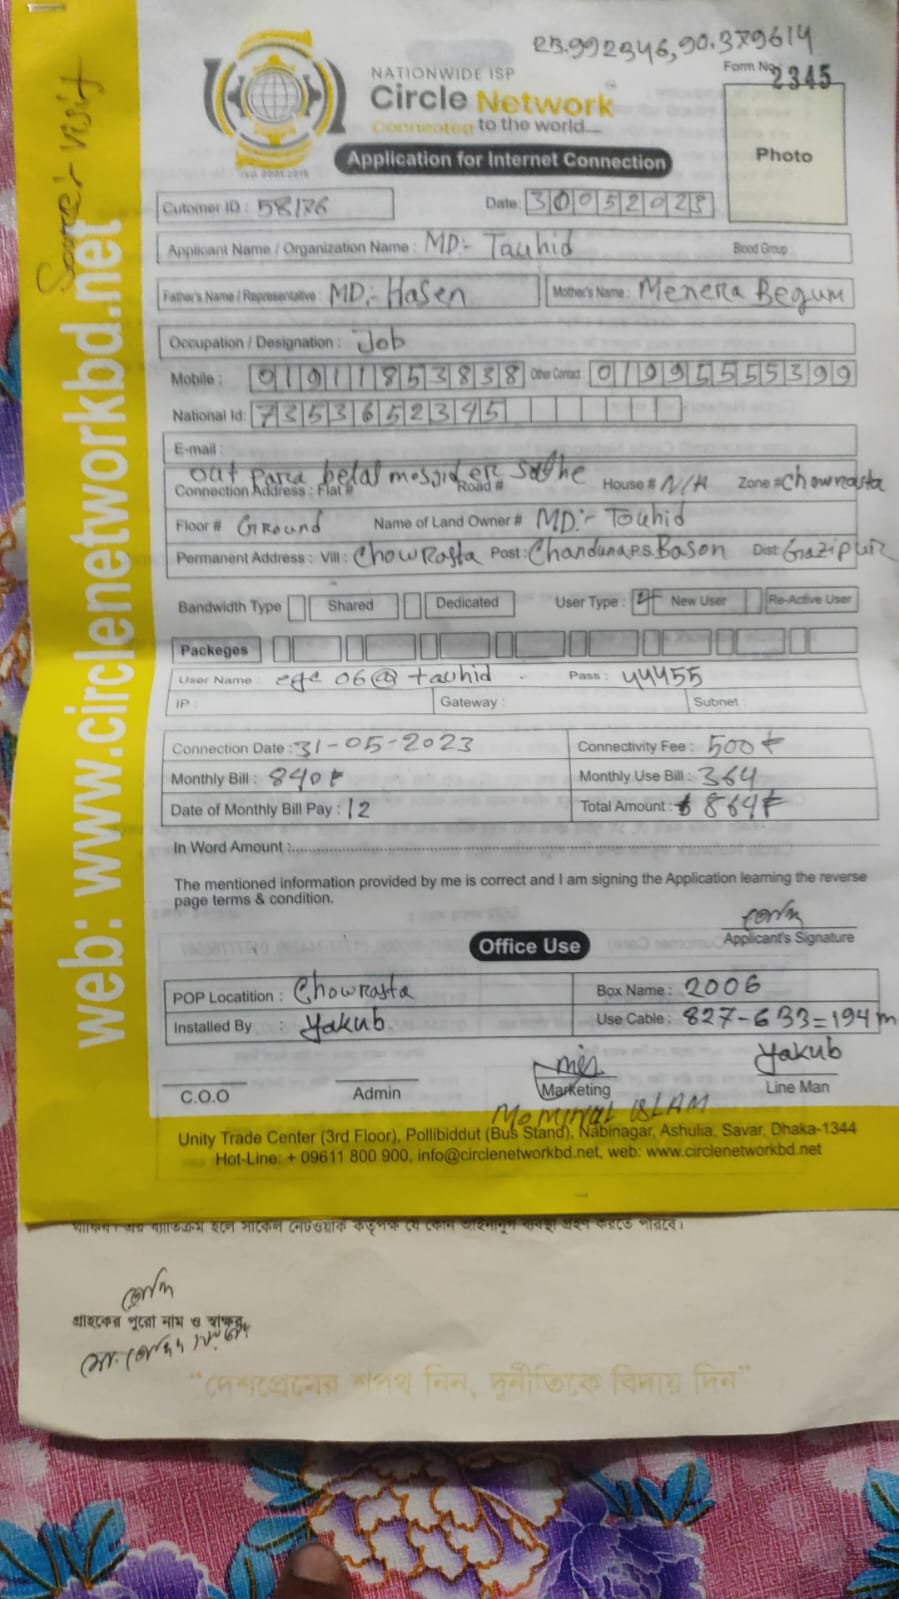 23.992346, 90.379614
Form No. 2345
NATIONWIDE ISP
Circle Network
Connected to the world...
ISO 9001:2015
Application for Internet Connection
Photo
Cutomer ID : 58176
Date 30052023
Applicant Name / Organization Name : MD:- Tauhid Blood Group :
Father's Name / Representative : MD:- Hasen Mother's Name : Menera Begum
Occupation / Designation : Job
Mobile : 01911853838 Other Contact 01995555399
National Id: 7353652345
E-mail :
out para belal mossider
Connection Address : Flat # Road # House # N/A Zone # Chowrasta
Floor # Ground Name of Land Owner # MD:- Touhid
Permanent Address : Vill : Chowrasta Post : Chanduna P.S. Bason Dist: Gazipur
Bandwidth Type Shared Dedicated User Type : New User Re-Active User
Packeges
User Name : 06@tauhid Pass : 44455
IP : Gateway : Subnet :
Connection Date : 31-05-2023 Connectivity Fee : 500৳
Monthly Bill : 840৳ Monthly Use Bill : 364
Date of Monthly Bill Pay : 12 Total Amount : 864৳
In Word Amount :
The mentioned information provided by me is correct and I am signing the Application learning the reverse
page terms & condition.
Applicant's Signature
Office Use
POP Locatition : Chowrasta Box Name : 2006
Installed By : Yakub Use Cable : 827-633=194m
Yakub
C.O.O Admin Marketing Line Man
Mominal ISLAM
Unity Trade Center (3rd Floor), Pollibiddut (Bus Stand), Nabinagar, Ashulia, Savar, Dhaka-1344
Hot-Line: + 09611 800 900, info@circlenetworkbd.net, web: www.circlenetworkbd.net
web: www.circlenetworkbd.net
ব্যতিক্রম হলে সার্কেল নেটওয়ার্ক কর্তৃপক্ষ যে কোন আইনানুগ ব্যবস্থা গ্রহণ করতে পারবে।
গ্রাহকের পুরো নাম ও স্বাক্ষর
"দেশপ্রেমের শপথ নিন, দুর্নীতিকে বিদায় দিন"